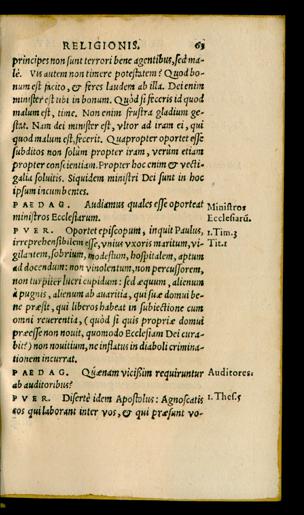 RELIGIONIS. 63
principes non sunt terrori bene agentibus, sed ma-
lè. Vis autem non timere potestatem? Quod bo-
num est facito, & feres laudem ab illa. Dei enim
minister est tibi in bonum. Quòd si feceris id quod
malum est, time. Non enim frustra gladium ge-
stat. Nam dei minister est, vltor ad iram ei, qui
quod malum est, fecerit. Quapropter oportet esse
subditos non solùm propter iram, verùm etiam
propter conscientiam. Propter hoc enim & vecti-
galia soluitis. Siquidem ministri Dei sunt in hoc
ipsum incumbentes.
PAEDAG. Audiamus quales esse oporteat Ministros
ministros Ecclesiarum. Ecclesiarū.
PVER. Oportet episcopum, inquit Paulus, 1. Tim. 3
irreprehensibilem esse, vnius vxoris maritum, vi- Tit. 1
gilantem, sobrium, modestum, hospitalem, aptum
ad docendum: non vinolentum, non percussorem,
non turpiter lucri cupidum: sed æquum, alienum
à pugnis, alienum ab auaritia, qui suæ domui be-
ne præsit, qui liberos habeat in subiectione cum
omni reuerentia, (quòd si quis propriæ domui
præesse non nouit, quomodo Ecclesiam Dei cura-
bit?) non nouitium, ne inflatus in diaboli crimina-
tionem incurrat.
PAEDAG. Quænam vicissim requiruntur Auditores:
ab auditoribus?
PVER. Disertè idem Apostolus: Agnoscatis 1. Thes. 5
eos qui laborant inter vos, & qui præsunt vo-